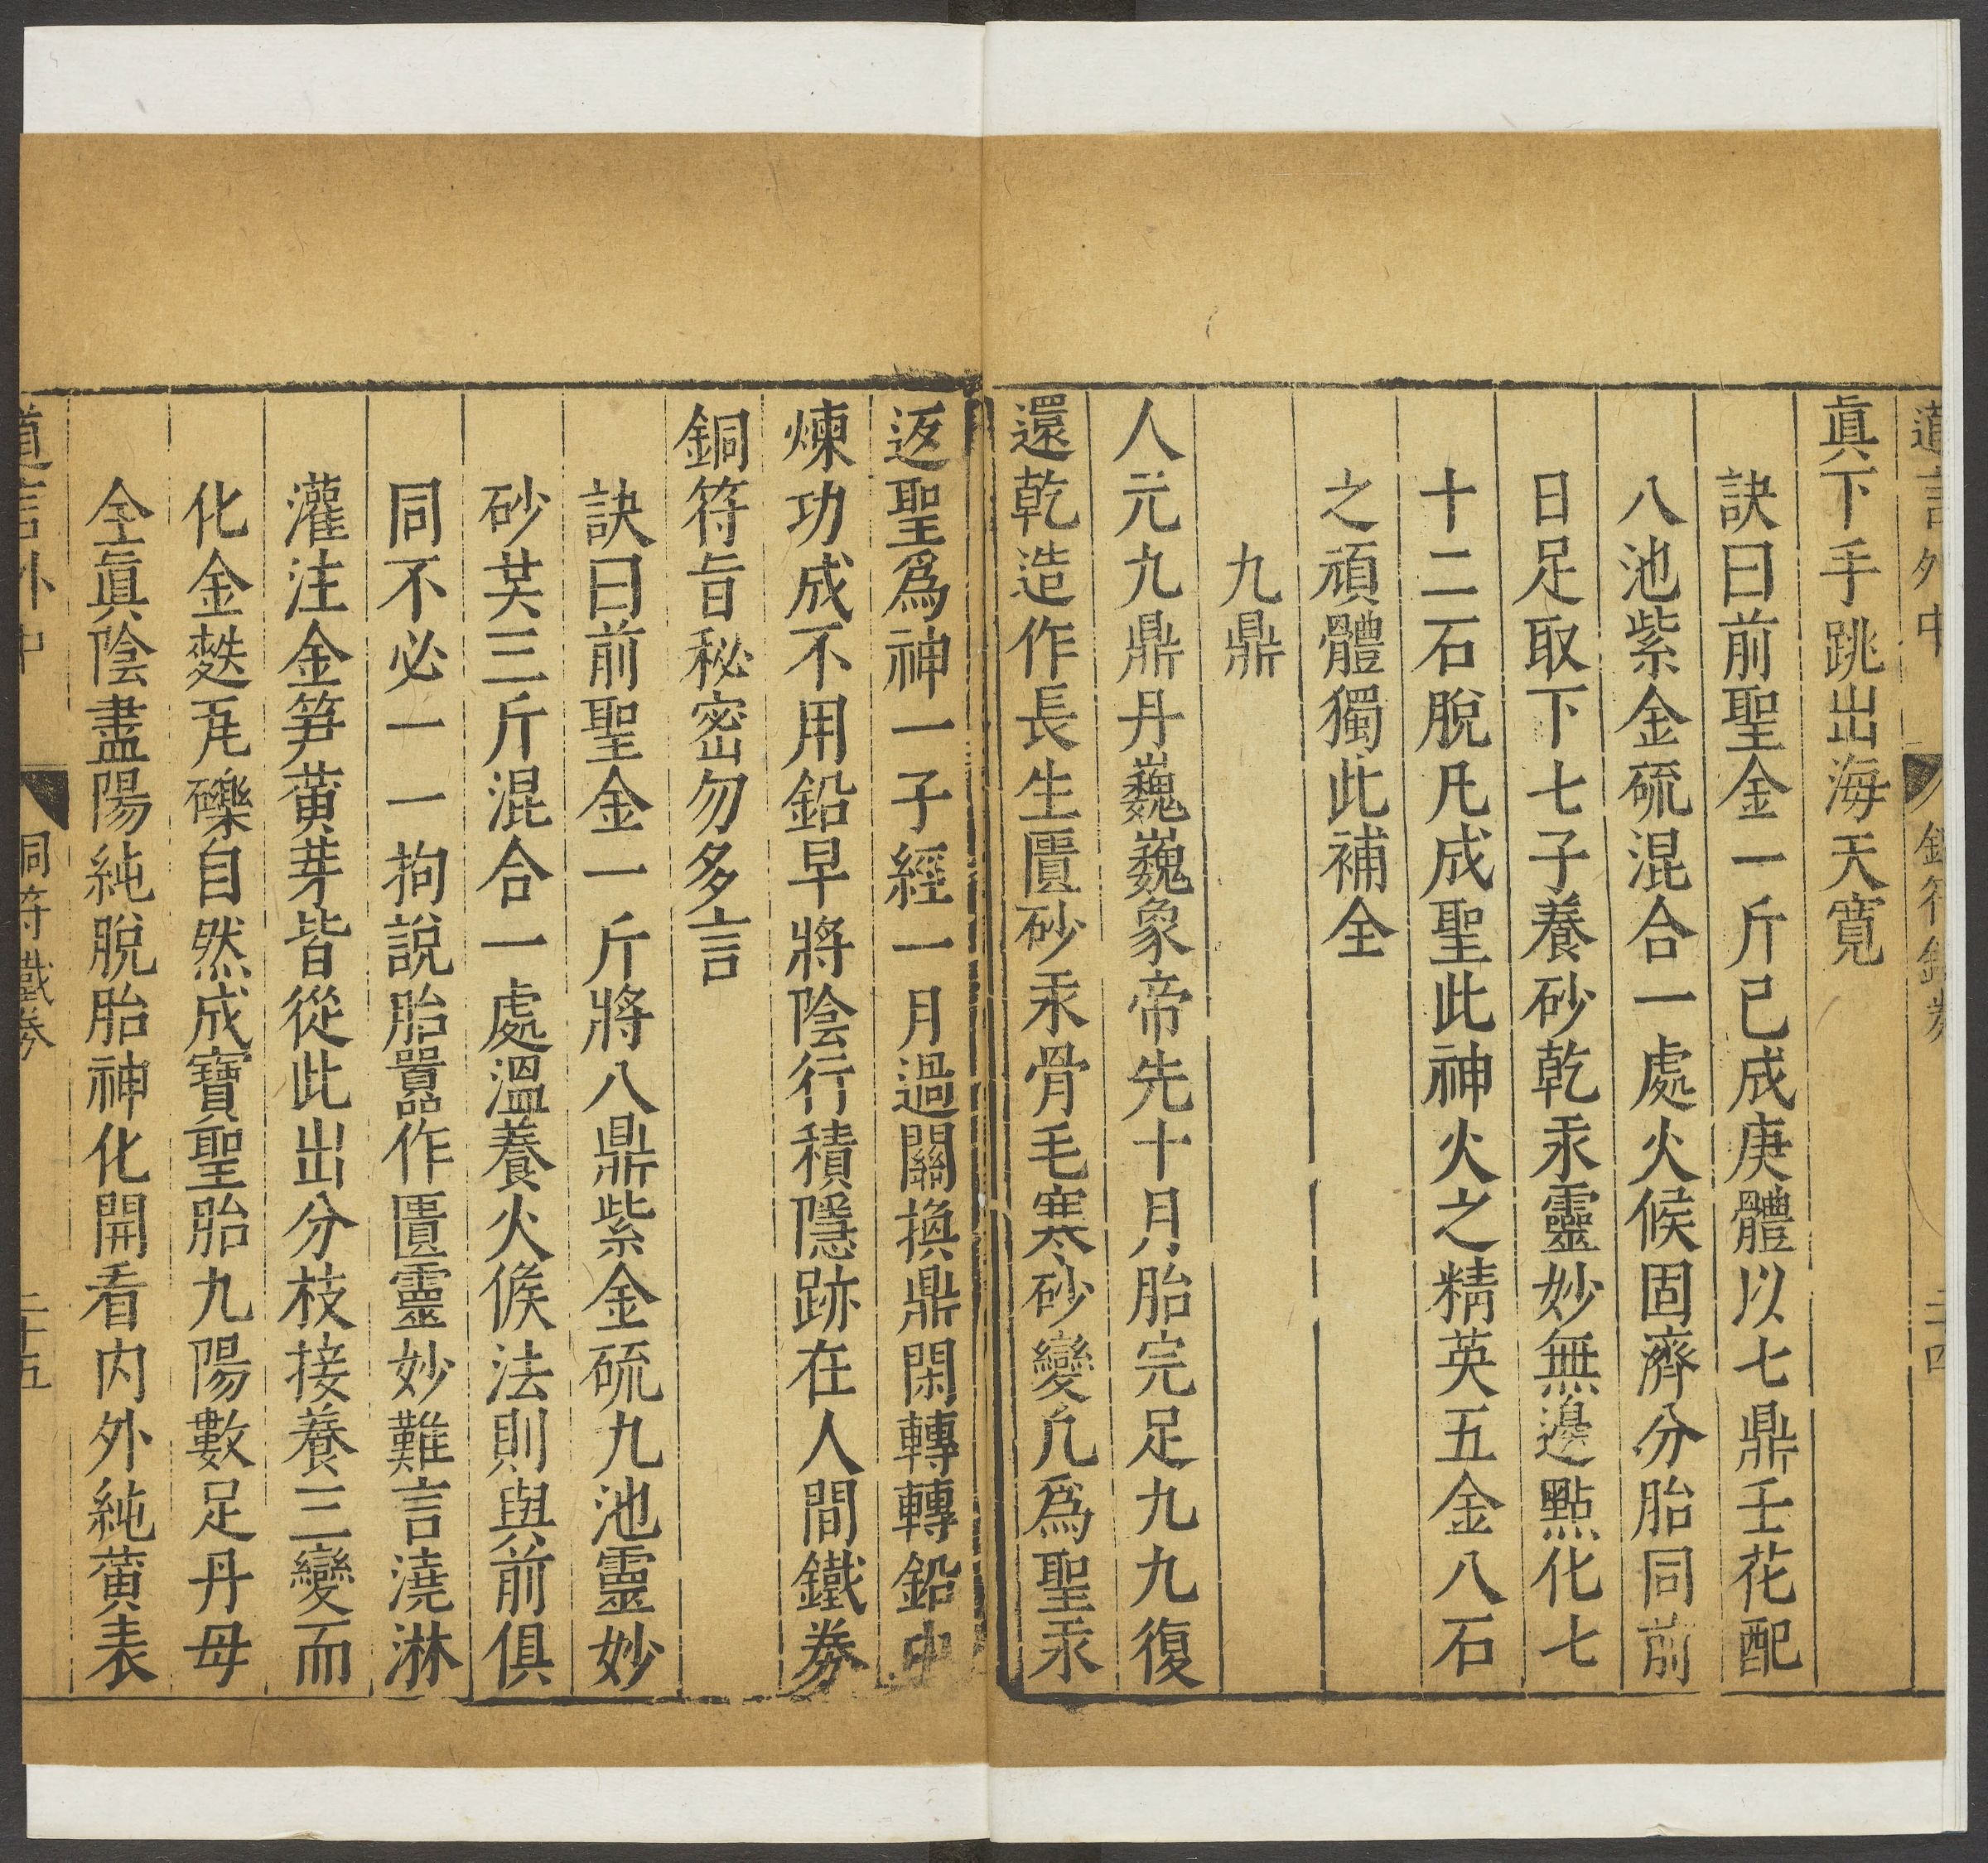 道言外中 銅符鐵券 二十四
眞下手跳出海天寬
訣曰前聖金一斤已成庚體以七鼎壬花配
八池紫金硫混合一處火候固濟分胎同前
日足取下七子養砂乾汞靈妙無邊點化七
十二石脫凡成聖此神火之精英五金八石
之頑體獨此補全
九鼎
人元九鼎丹巍巍象帝先十月胎完足九九復
還乾造作長生匱砂汞骨毛寒砂變凢爲聖汞
返聖爲神一子經一月過關換鼎閑轉轉鉛中
煉功成不用鉛早將陰行積隱跡在人間鐵券
銅符旨秘密勿多言
訣曰前聖金一斤將八鼎紫金硫九池靈妙
砂芖三斤混合一處溫養火候法則與前俱
同不必一一拘說胎嚣作匱靈妙難言澆淋
灌注金筍黃芽皆從此出分枝接養三變而
化金麩瓦礫自然成寶聖胎九陽數足丹母
全眞陰盡陽純脫胎神化開看內外純黃表
道言外中 銅符鐵券 二十五